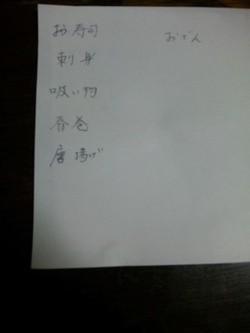 お寿司
刺身
吸い物
春巻
唐揚げ
おでん